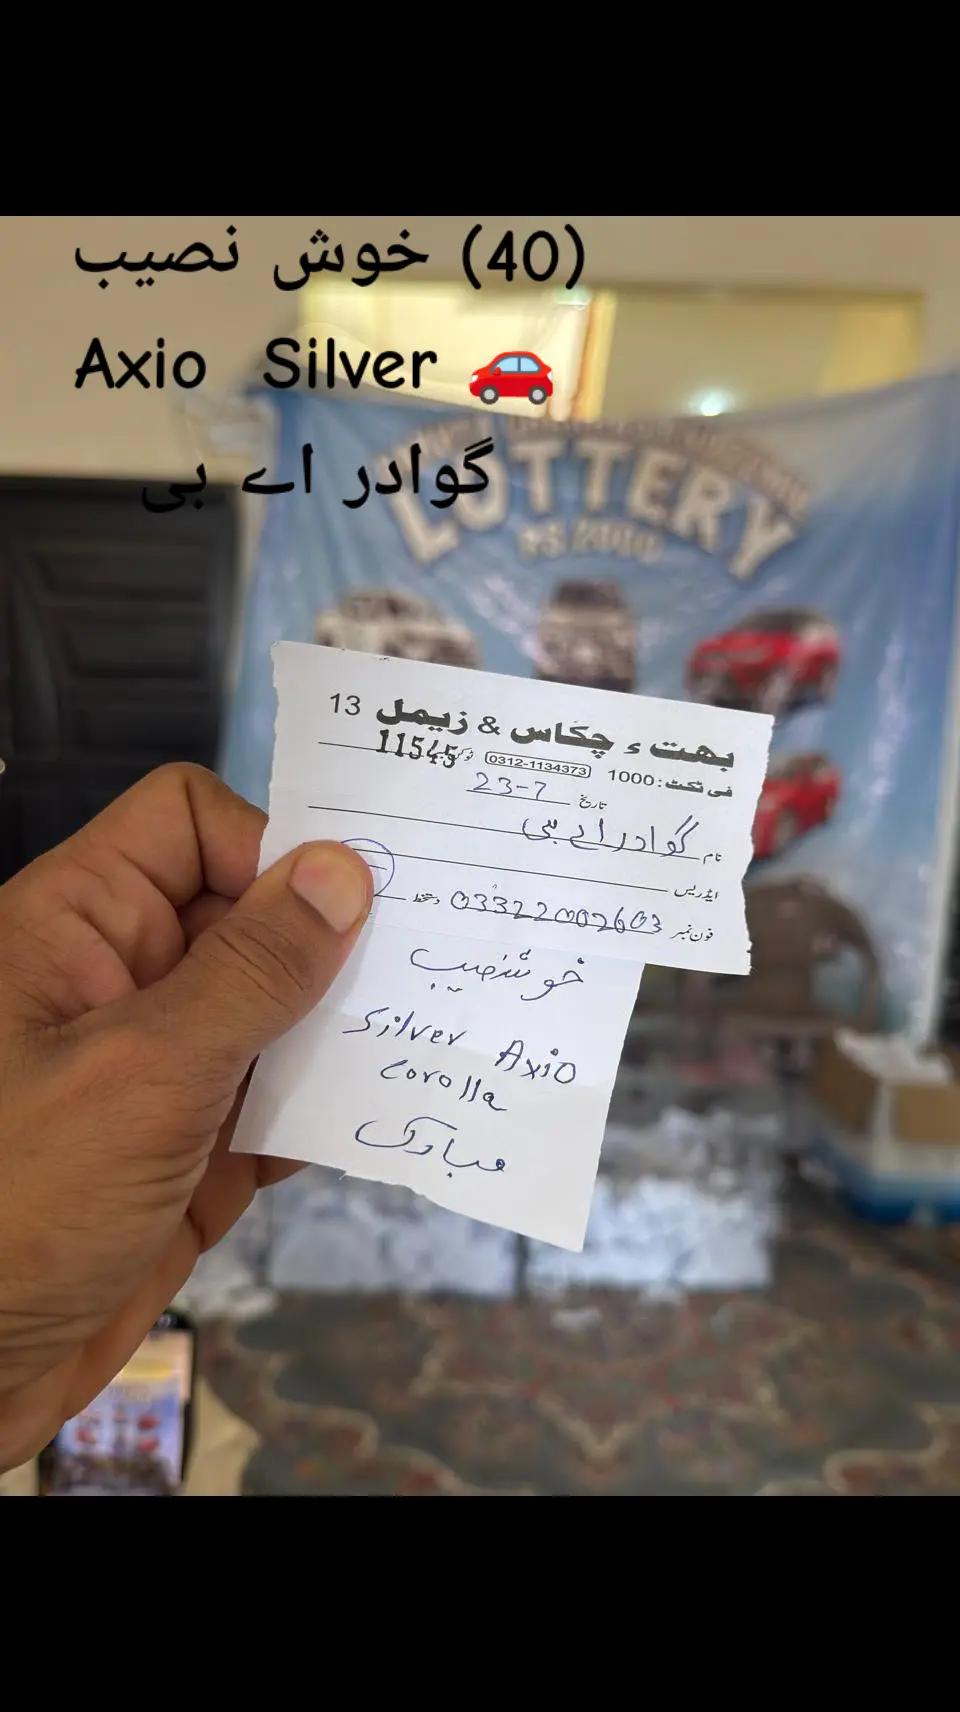 (40) خوش نصیب
Axio Silver 🚗
گوادر اے بی
LOTTERY
RS.2000
بھت ء چکاس & زیمل 13
فی ٹکٹ: 1000 0312-1134373 ٹوکن 11545
تاریخ 23-7
نام گوادر اے بی
ایڈریس
فون نمبر 03322002603 دستخط
خوشنصیب
Silver Axio
Corolla
مبارک